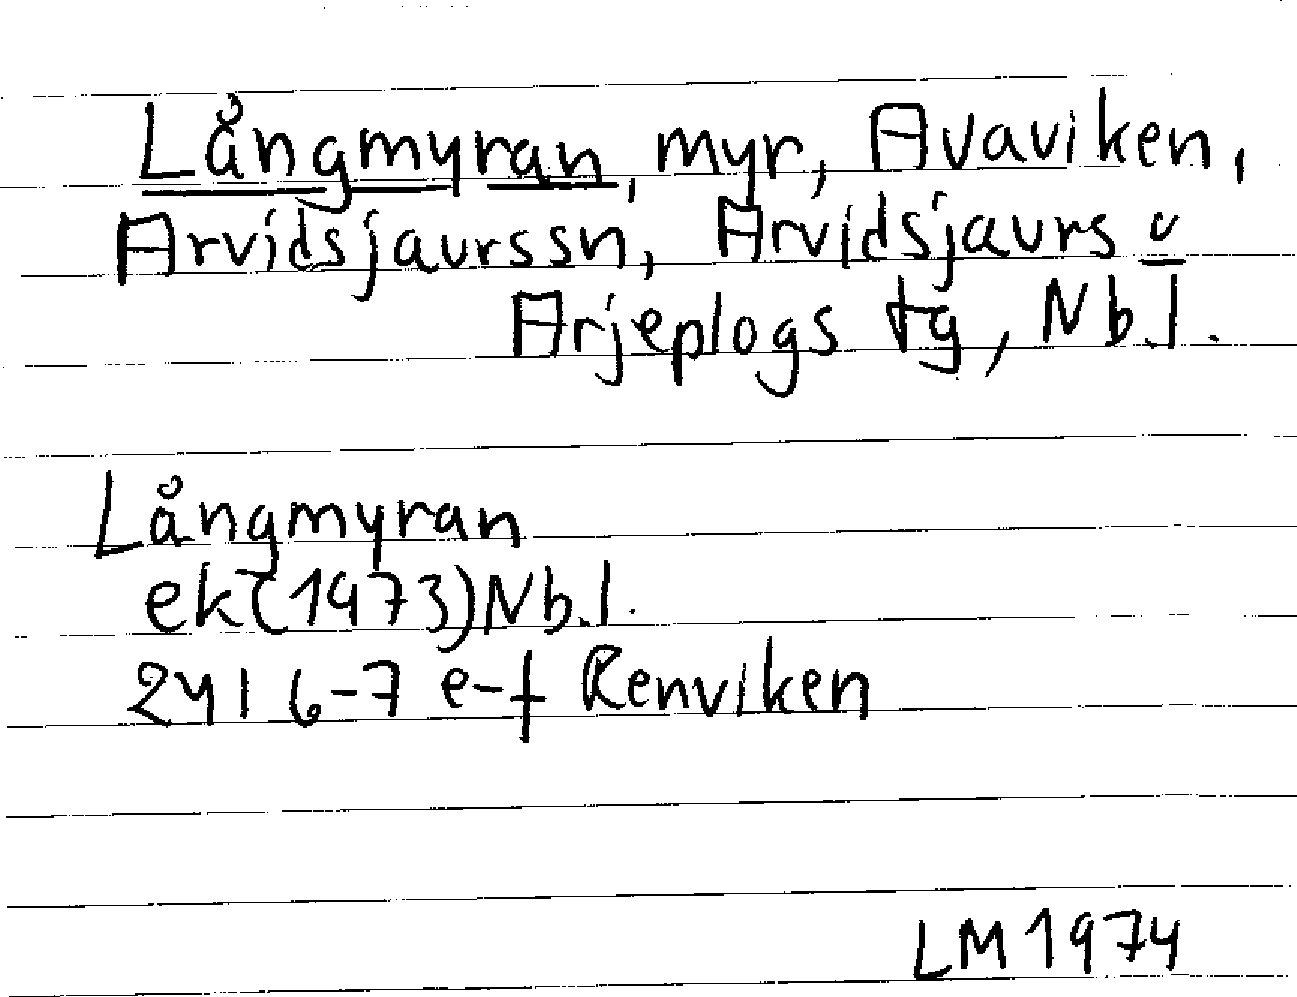 Långmyran, myr, Avaviken,
Arvidsjaurssn, Arvidsjaurs o
Arjeplogs tg, Nb.l.
Långmyran
ek (1973) Nb.l.
24I 6-7 e-f Renviken
LM 1974